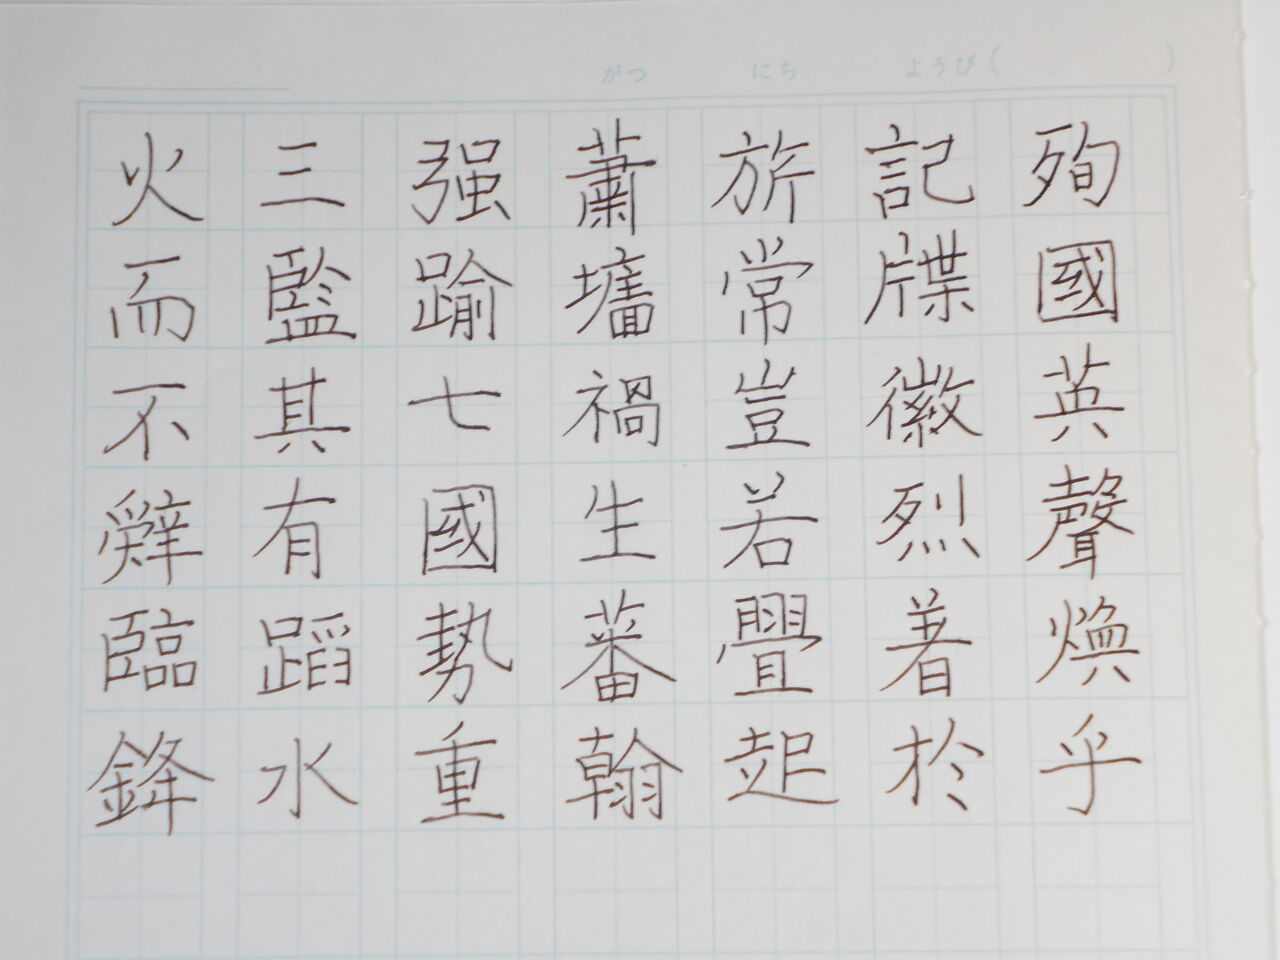 がつ にち ようび( )
殉國英聲煥乎
記牒徽烈著於
旂常豈若疊起
蕭墻禍生蕃翰
强踰七國勢重
三監其有蹈水
火而不辭臨鋒